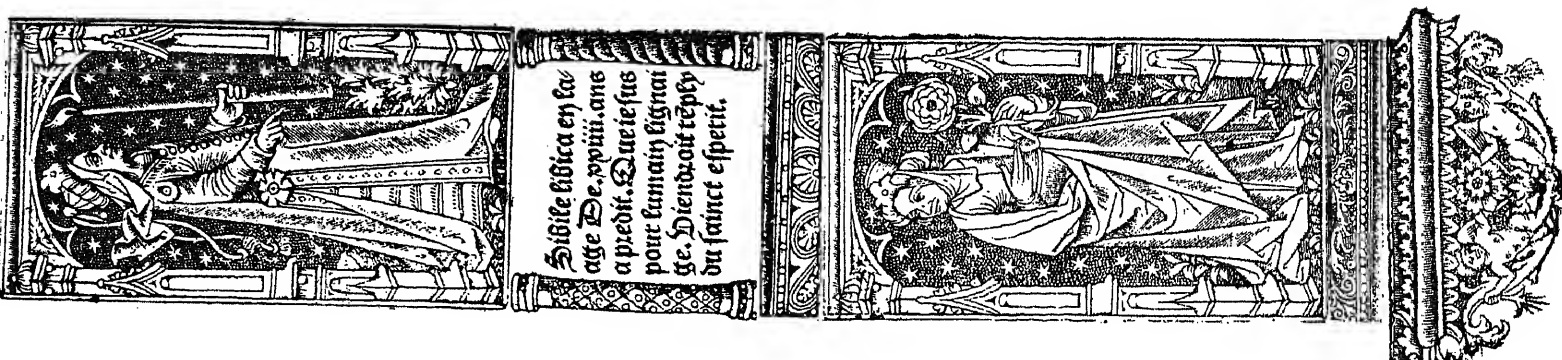 Sibile libica en son
aage De.xxiiii.ans
a predit.Que iesus
pour humain lignai
ge. Viendroit reply
du sainct esperit.